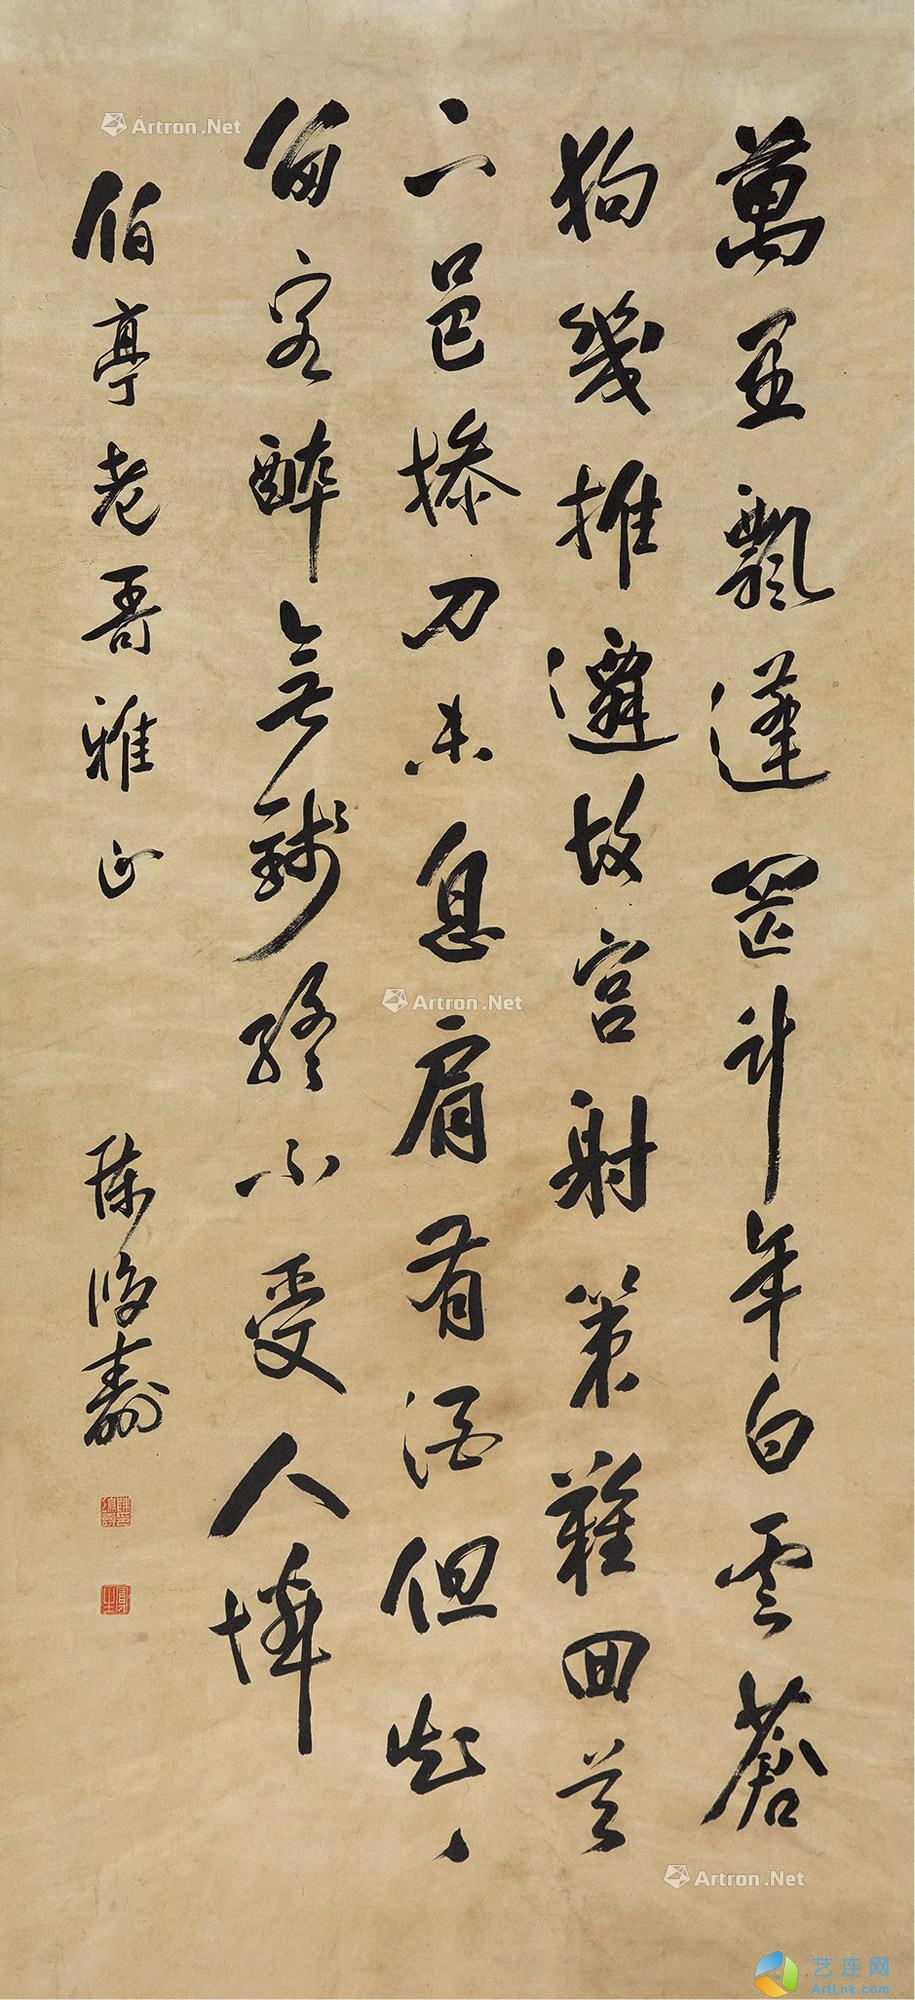 萬里飄蓬罔計年白雲蒼
狗幾推遷故宮射策難回首
下邑操刀未息肩有酒但
留客醉無錢終不受人憐
伯亭老哥雅正
陳鴻壽
Artron.Net
Artron.Net
Artron.Net
艺连网
ArtLnk.com